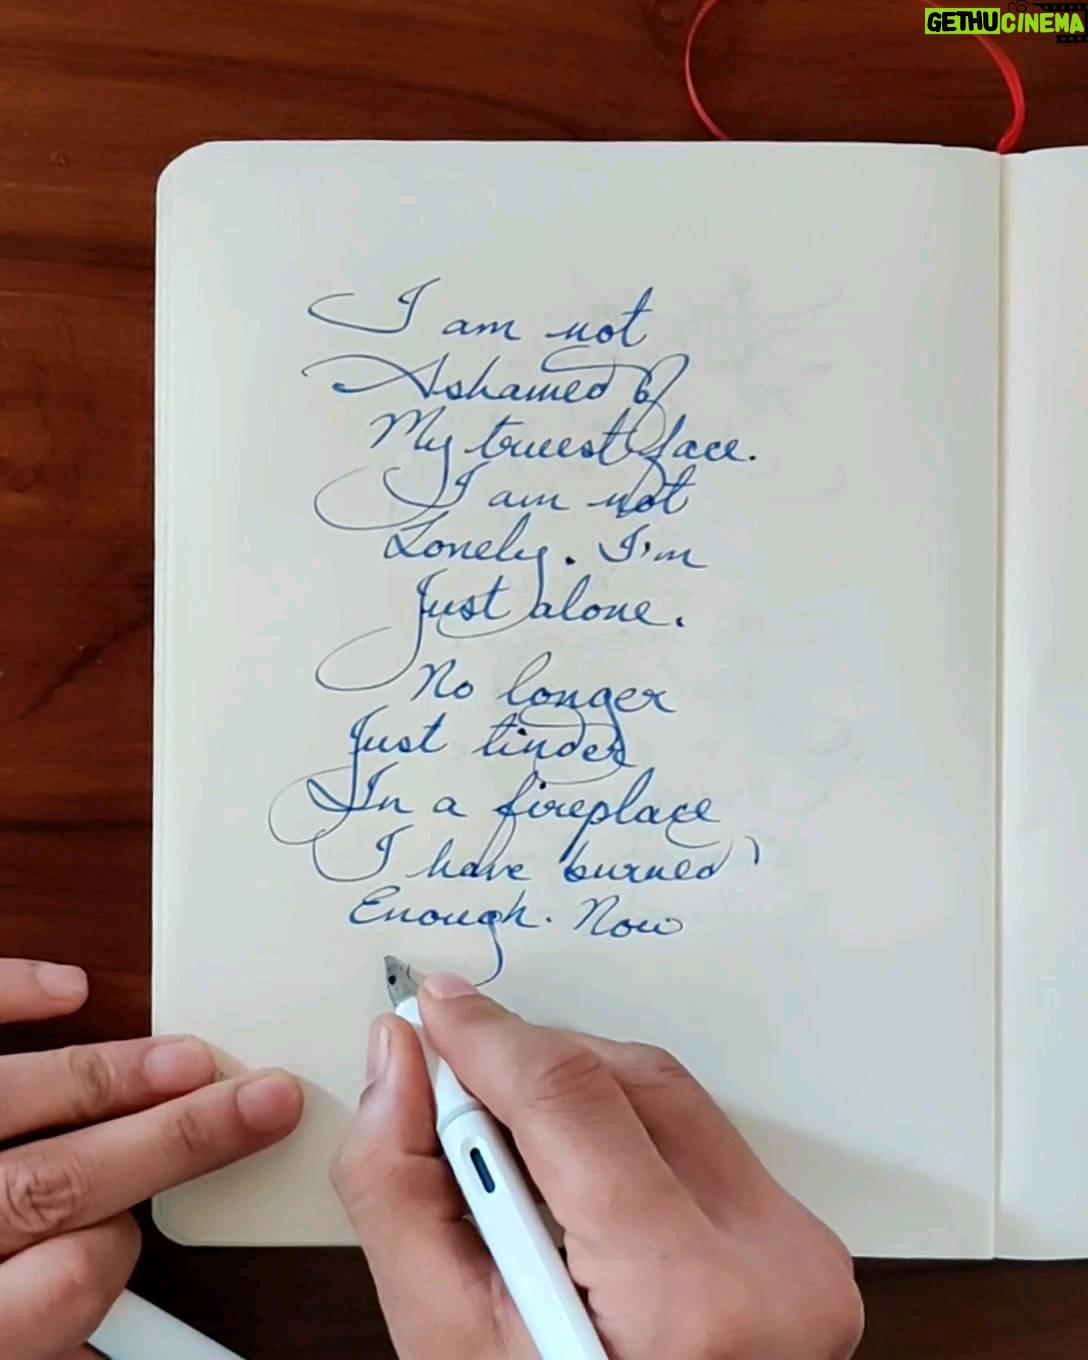 GETHUCINEMA
I am not
Ashamed of
My truest face.
I am not
Lonely. I'm
Just alone.
No longer
Just tinder
In a fireplace
I have burned
Enough. Now